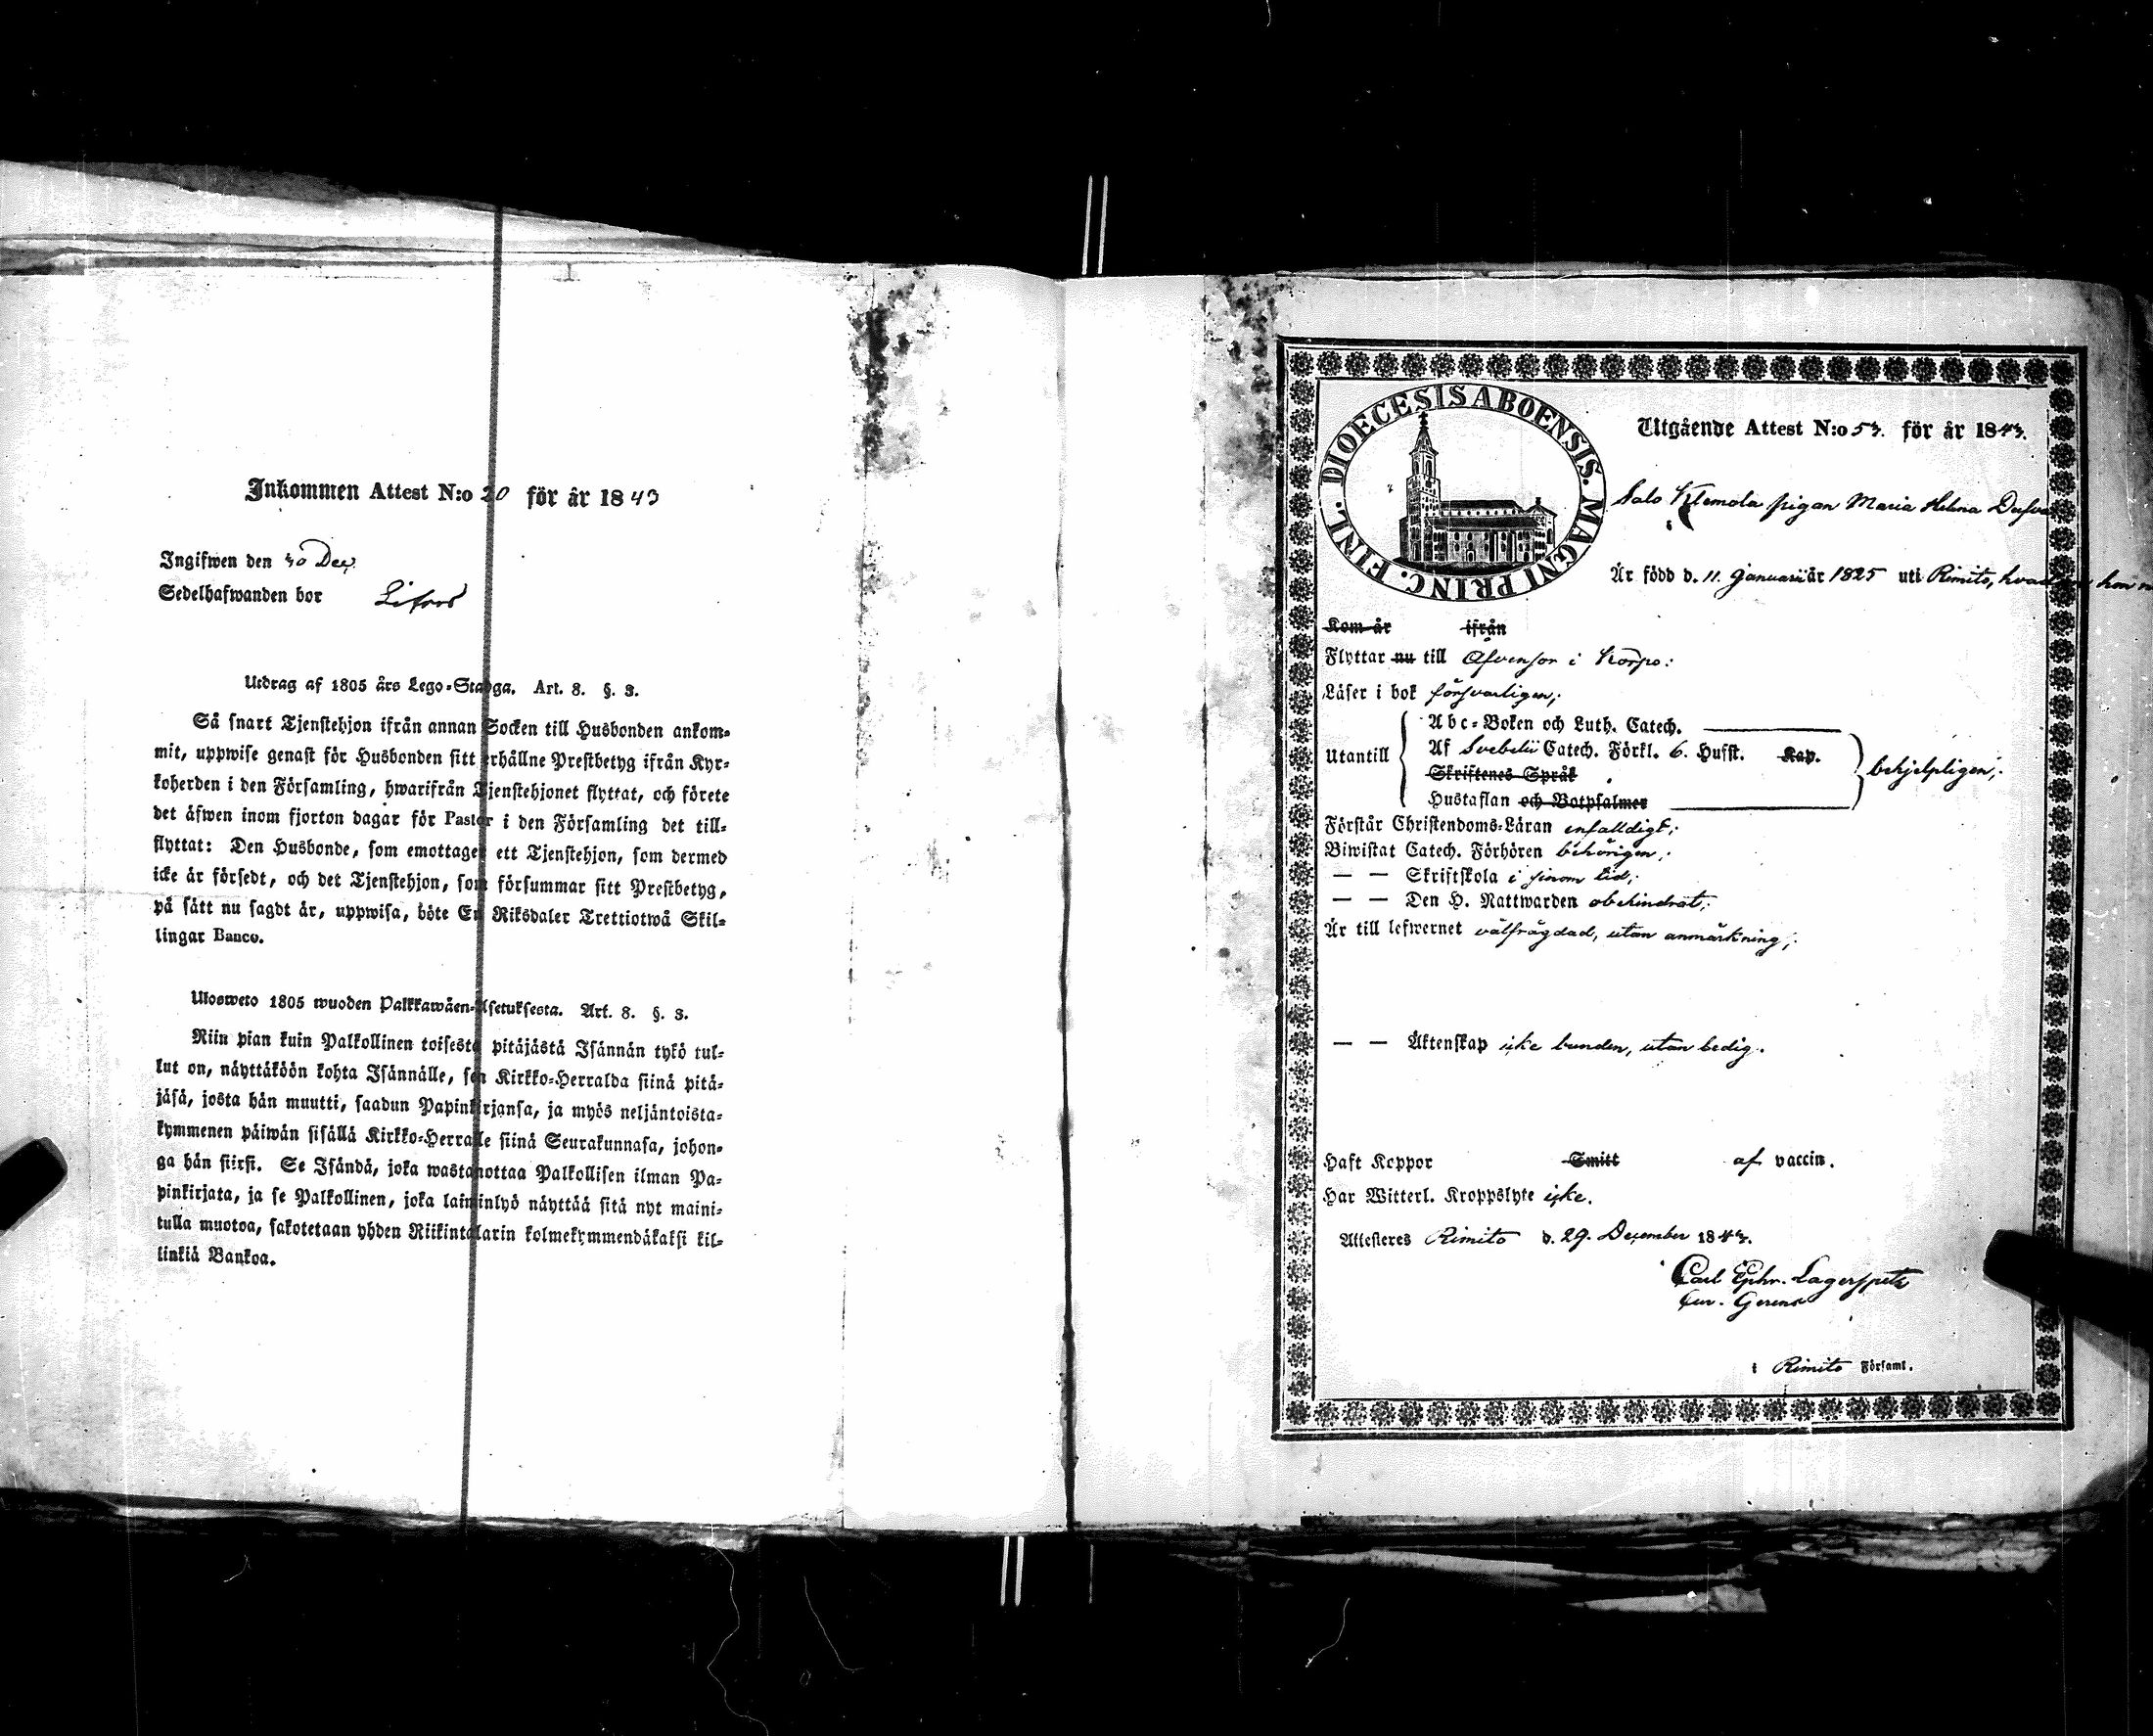 Inkommen Attest N:o 20 för år 1843
Ingifwen den 30 Dec.
Sedelhafwanden bor
Utdrag af 1805 års Lego-Stadga. Art. 8. §. 3.
Så snart Tjenstehjon ifrån annan Socken till Husbonden ankom-
mit, uppwise genast för Husbonden sitt erhållne Prestbetyg ifrån Kyr-
koherden i den Församling, hwarifrån Tjenstehjonet flyttat, och förete
det äfwen inom fjorton dagar för Pastor i den Församling det till-
flyttat: Den Husbonde, som emottager ett Tjenstehjon, som dermed
icke är försedt, och det Tjenstehjon, som försummar sitt Prestbetyg,
på sätt nu sagdt är, uppwisa, böte En Riksdaler Trettiotwå Skil-
lingar Banco.
Ulosweto 1805 wuoden Palkkawäen-Asetuksesta. Art. 8. §. 3.
Niin pian kuin Palkollinen toisesta pitäjästä Isännän tykö tul-
lut on, näyttäköön kohta Isännälle, sen Kirkko-Herralda siinä pitä-
jäsä, josta hän muutti, saadun Papinkirjansa, ja myös neljäntoista-
kymmenen päiwän sisällä Kirkko-Herralle siinä Seurakunnasa, johon-
ga hän siirsi. Se Isändä, joka wastanottaa Palkollisen ilman Pa-
pinkirjata, ja se Palkollinen, joka laiminlyö näyttää sitä nyt maini-
tulla muotoa, sakotetaan yhden Riikintalarin kolmekymmendäkaksi kil-
linkiä Bankoa.
DIOECESIS ABOENSIS. MAGNI PRINC. FINL.
Utgående Attest N:o 53. för år 1843.
Salo Klemola pigan Maria Helena Dufva
Är född d. 11 Januarii år 1825 uti Rimito, hvad hon
Kom år ifrån
Flyttar nu till Åfvensor i Korpo:
Läser i bok försvarligen;
Utantill
Abc-Boken och Luth. Catech.
Af Svebelii Catech. Förkl. 6. Husst. Kap.
Skriftenes Språk
Hustaflan och Botpsalmer
behjelpligen;
Förstår Christendoms-Läran enfalldigt;
Biwistat Catech. Förhören behörigen;
— — Skriftskola i sinom tid;
— — Den H. Nattwarden obehindrat;
Är till lefwernet välfrägdad, utan anmärkning;
— — Äktenskap icke bunden, utan ledig.
Haft Koppor Smitt af vaccin.
Har Witterl. Kroppslyte icke.
Attesteres Rimito d. 29. December 1843.
Carl Ephr. Lagerspetz
Cur. Gerens
i Rimito Församl.